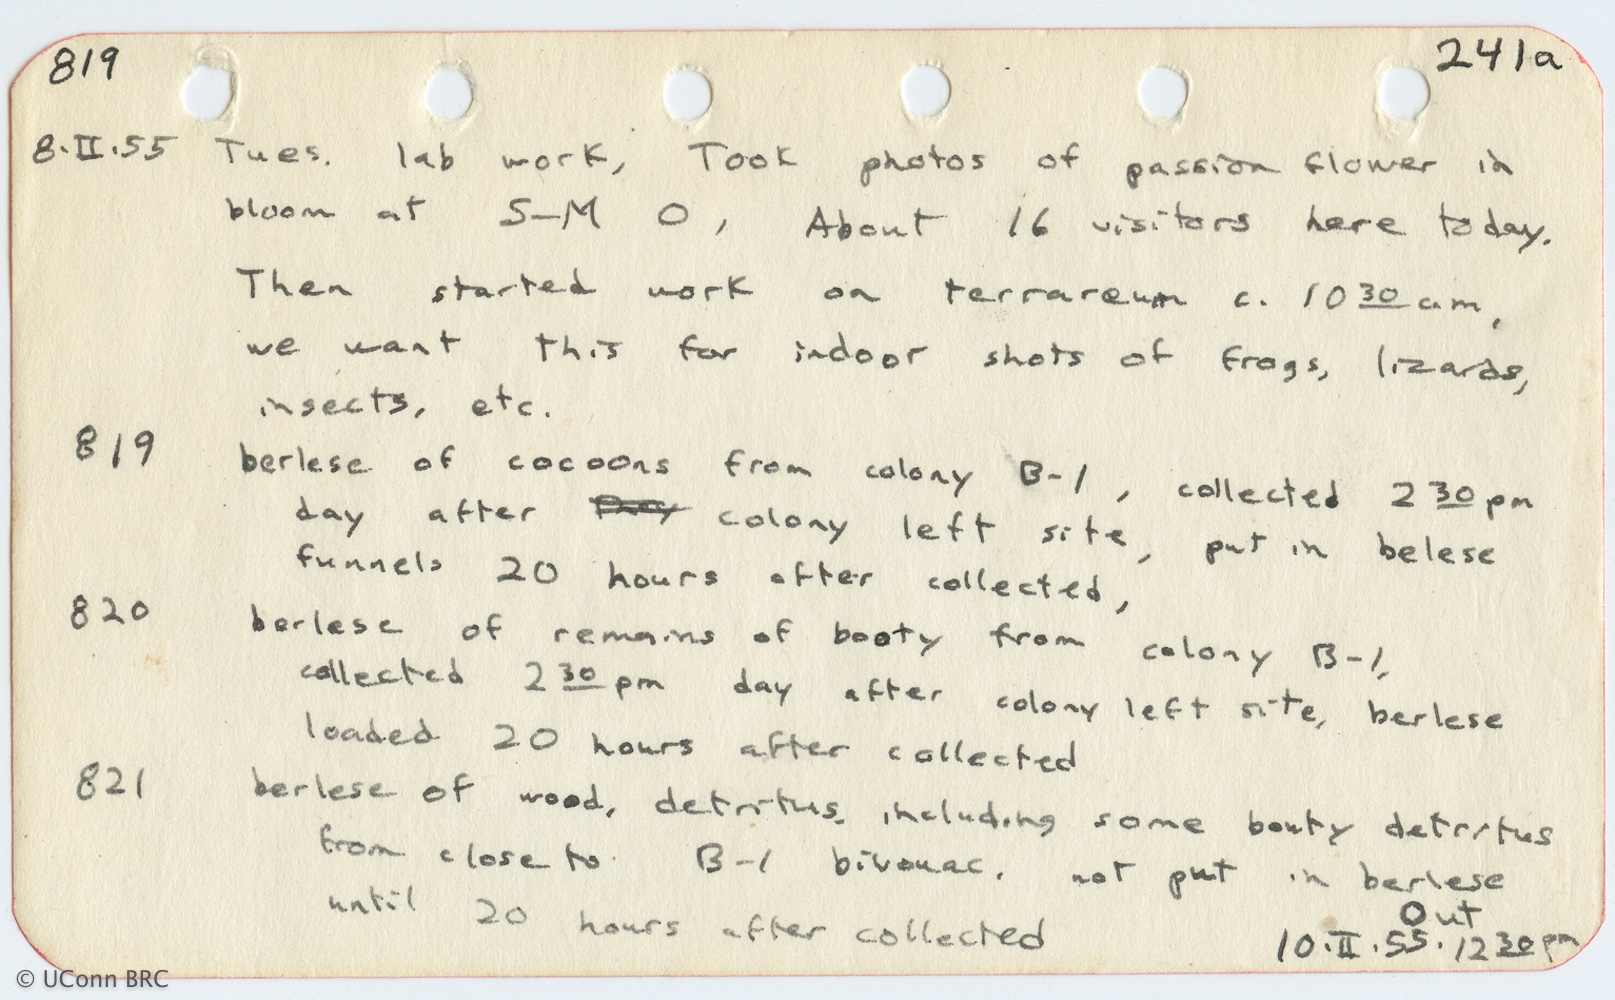 819 241a
8.II.55 Tues. lab work, Took photos of passion flower in
bloom at S-M O, About 16 visitors here today.
Then started work on terrareum c. 10 30 am,
we want this for indoor shots of frogs, lizards,
insects, etc.
819 berlese of cocoons from colony B-1, collected 2 30 pm
day after colony left site, put in belese
funnels 20 hours after collected,
820 berlese of remains of booty from colony B-1,
collected 2 30 pm day after colony left site, berlese
loaded 20 hours after collected
821 berlese of wood, detritus, including some bouty detritus
from close to B-1 bivouac. not put in berlese
until 20 hours after collected
Out
10.II.55. 12 30 pm
© UConn BRC